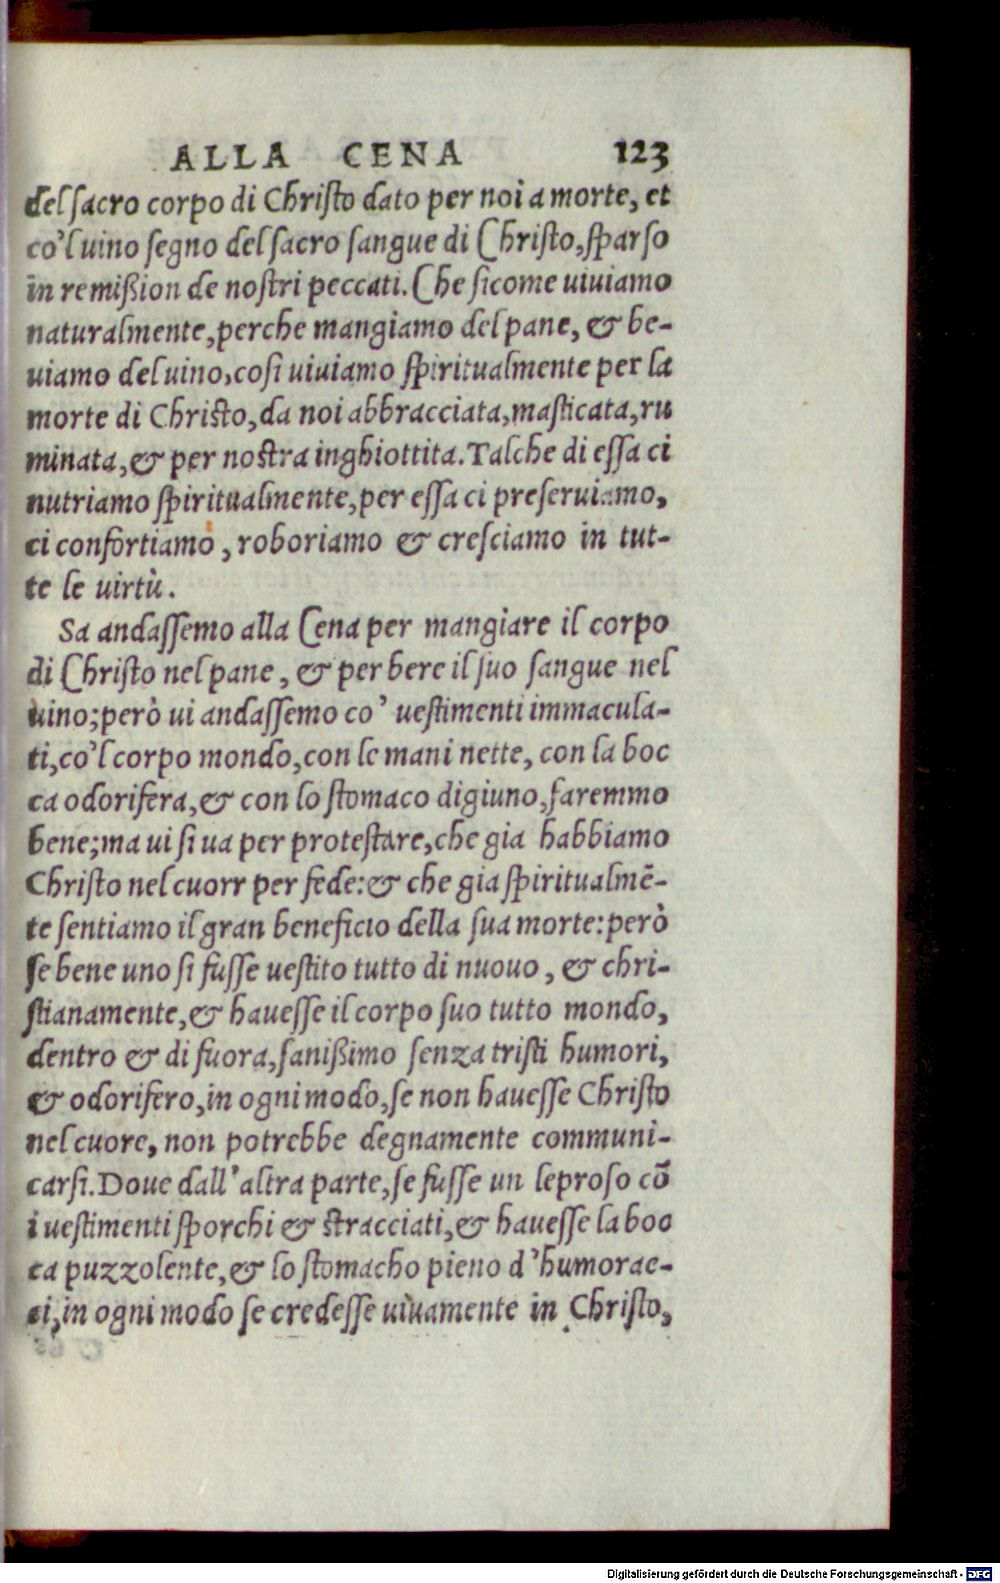 ALLA CENA 123
del sacro corpo di Chriſto dato per noi a morte, et
co'l uino ſegno del ſacro ſangue di Chriſto, ſparſo
in remißion de noſtri peccati. Che ſicome uiuiamo
naturalmente, perche mangiamo del pane, & be-
uiamo del uino, coſi uiuiamo ſpiritualmente per la
morte di Chriſto, da noi abbracciata, maſticata, ru
minata, & per noſtra inghiottita. Talche di eſſa ci
nutriamo ſpiritualmente, per eſſa ci preſeruiamo,
ci confortiamo, roboriamo & creſciamo in tut-
te le uirtù.
Sa andaſſemo alla Cena per mangiare il corpo
di Chriſto nel pane, & per bere il ſuo ſangue nel
uino; però ui andaſſemo co' ueſtimenti immacula-
ti, co'l corpo mondo, con le mani nette, con la boc
ca odorifera, & con lo ſtomaco digiuno, faremmo
bene; ma ui ſi ua per proteſtare, che gia habbiamo
Chriſto nel cuorr per fede: & che gia ſpiritualmē-
te ſentiamo il gran beneficio della ſua morte: però
ſe bene uno ſi fuſſe ueſtito tutto di nuouo, & chri-
ſtianamente, & haueſſe il corpo ſuo tutto mondo,
dentro & di fuora, ſanißimo ſenza triſti humori,
& odorifero, in ogni modo, ſe non haueſſe Chriſto
nel cuore, non potrebbe degnamente communi-
carſi. Doue dall'altra parte, ſe fuſſe un leproſo cō
i ueſtimenti ſporchi & ſtracciati, & haueſſe la boc
ca puzzolente, & lo ſtomacho pieno d'humorac-
ci, in ogni modo ſe credeſſe uiuamente in Chriſto,
Digitalisierung gefördert durch die Deutsche Forschungsgemeinschaft - DFG